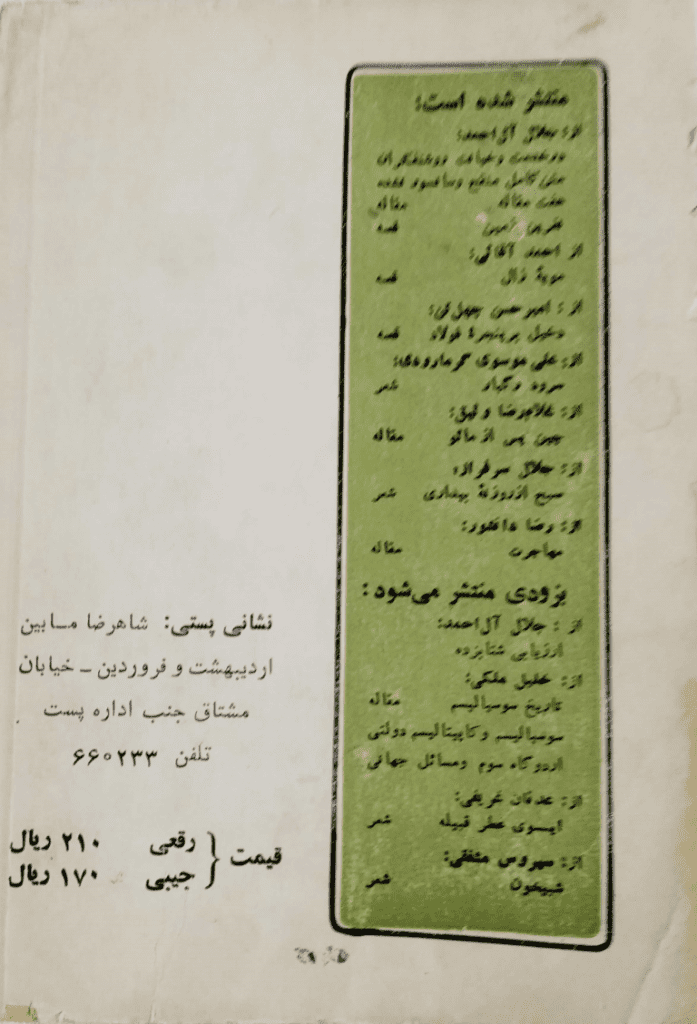 منتشر شده است:
از: جلال آل‌احمد:
در خدمت و خیانت روشنفکران
متن کامل منقح وسانسور نشده
هفت مقاله مقاله
نفرین زمین قصه
از احمد آقائی:
مویهٔ زال قصه
از: امیرحسن چهل‌تن:
دخیل بر پنجرهٔ فولاد قصه
از: علی موسوی گرمارودی:
سرود رگبار شعر
از: غلامرضا وثیق:
چین پس از مائو مقاله
از: جلال سرفراز:
صبح از روزنهٔ بیداری شعر
از: رضا دانشور:
مهاجرت مقاله
بزودی منتشر می‌شود:
از: جلال آل‌احمد:
ارزیابی شتابزده
از: خلیل ملکی:
تاریخ سوسیالیسم مقاله
سوسیالیسم و کاپیتالیسم دولتی
اردوگاه سوم ومسائل جهانی
از: عدنان غریفی:
اینسوی عطر قبیله شعر
از: سیروس مشفقی:
شبیخون شعر
نشانی پستی: شاهرضا مـابین
اردیبهشت و فروردین ـ خیابان
مشتاق جنب اداره پست
تلفن ۶۶۰۲۳۳
قیمت { رقعی ۲۱۰ ریال
جیبی ۱۷۰ ریال